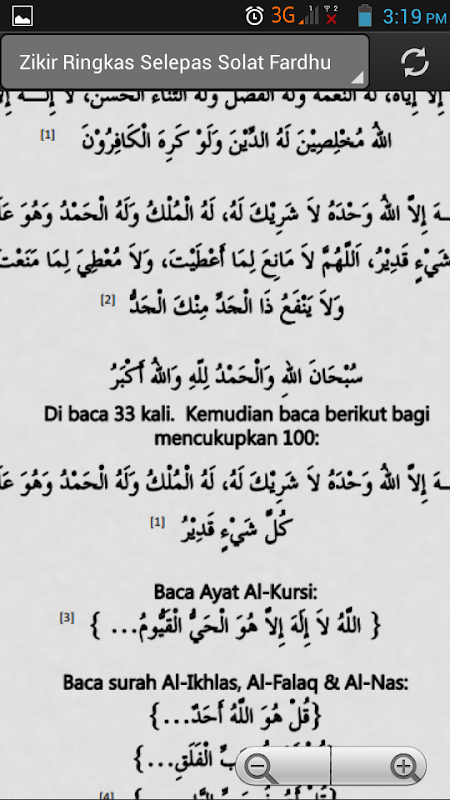 3G 3:19 PM
Zikir Ringkas Selepas Solat Fardhu
إِلاَّ إِيَّاهُ، لَهُ النِّعْمَةُ وَلَهُ الْفَضْلُ وَلَهُ الثَّنَاءُ الْحَسَنُ، لاَ إِلَـهَ
اللهُ مُخْلِصِيْنَ لَهُ الدِّيْنَ وَلَوْ كَرِهَ الْكَافِرُوْنَ [1]
إِلاَّ اللهُ وَحْدَهُ لاَ شَرِيْكَ لَهُ، لَهُ الْمُلْكُ وَلَهُ الْحَمْدُ وَهُوَ
شَيْءٍ قَدِيْرُ، اَللَّهُمَّ لاَ مَانِعَ لِمَا أَعْطَيْتَ، وَلاَ مُعْطِيَ لِمَا مَنَعْتَ
وَلاَ يَنْفَعُ ذَا الْجَدِّ مِنْكَ الْجَدُّ [2]
سُبْحَانَ اللهِ وَالْحَمْدُ لِلَّهِ وَاللهُ أَكْبَرُ
Di baca 33 kali. Kemudian baca berikut bagi
mencukupkan 100:
إِلاَّ اللهُ وَحْدَهُ لاَ شَرِيْكَ لَهُ، لَهُ الْمُلْكُ وَلَهُ الْحَمْدُ وَهُوَ
كُلِّ شَيْءٍ قَدِيْرُ [1]
Baca Ayat Al-Kursi:
{ اللَّهُ لاَ إِلَهَ إِلاَّ هُوَ الْحَيُّ الْقَيُّومُ... } [3]
Baca surah Al-Ikhlas, Al-Falaq & Al-Nas:
{قُلْ هُوَ اللَّهُ أَحَدٌ...}
الْفَلَقِ...}
[4]